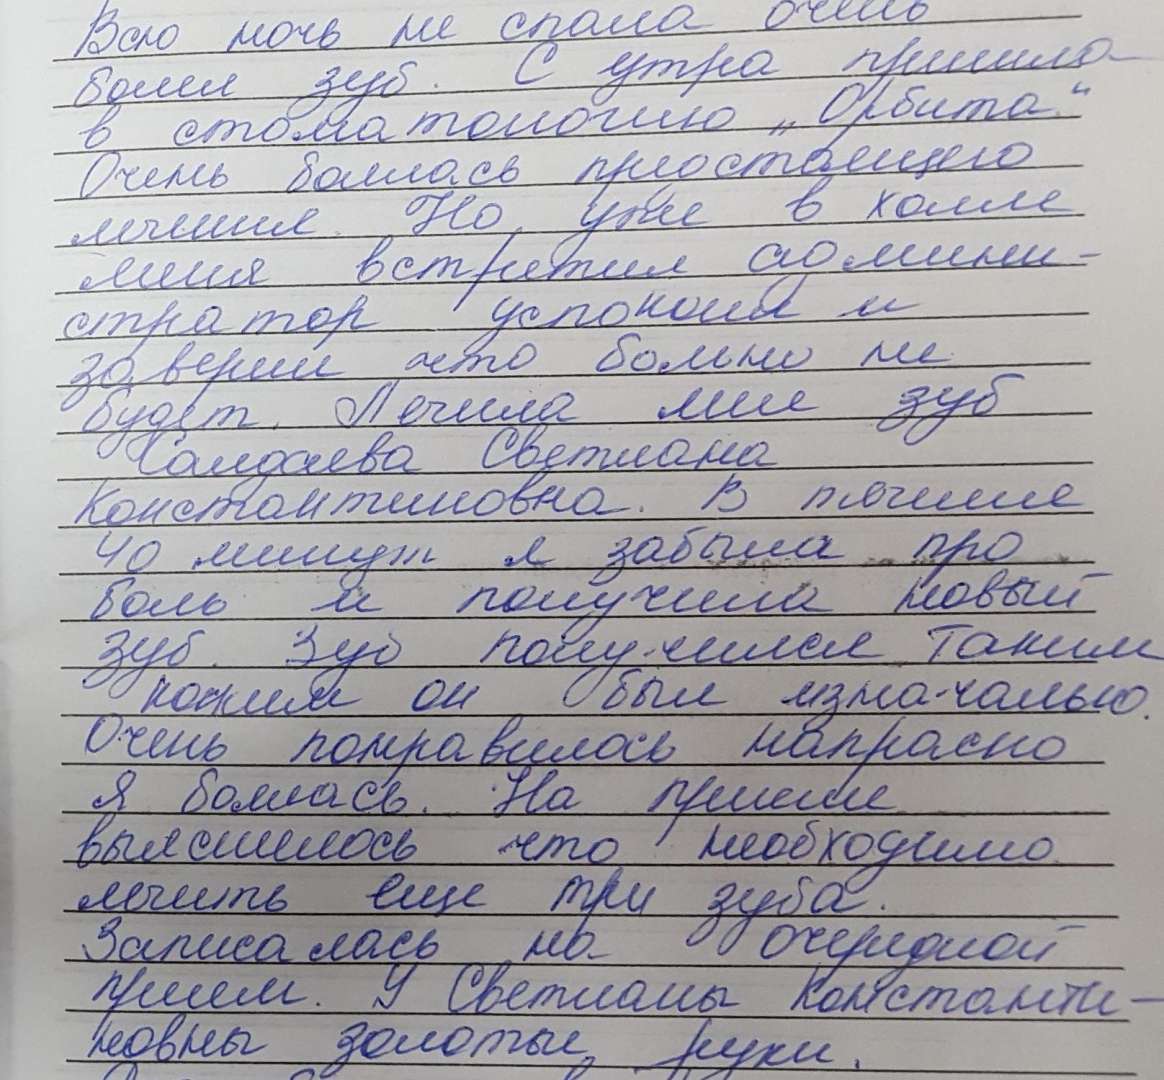 Всю ночь не спала очень
болел зуб. С утра пришла
в стоматологию „Орбита."
Очень боялась предстоящего
лечения. Но уже в холле
меня встретил админи-
стратор успокоил и
заверил что больно не
будет. Лечила мне зуб
Светлана
Константиновна. В течение
40 минут я забыла про
боль и получила новый
зуб. Зуб получился таким
каким он был изначально.
Очень понравилось напрасно
я боялась. На приеме
выяснилось что необходимо
лечить еще три зуба.
Записалась на очередной
прием. У Светланы Константи-
новны золотые руки.